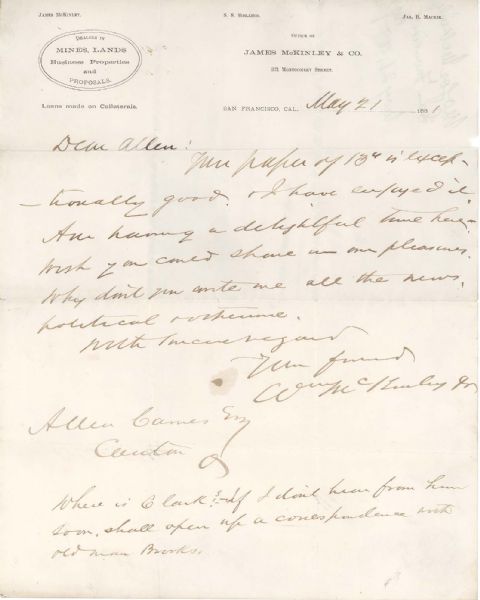 JAMES McKINLEY.
S. S. 
JAS. H. MACKIE.
OFFICE OF
JAMES McKINLEY & CO.
321 MONTGOMERY STREET.
DEALERS IN
MINES, LANDS
Business Properties
and
PROPOSALS.
Loans made on Collaterals.
SAN FRANCISCO, CAL. May 21 1881
Dear Allen:
Your paper of 13th is excep-
-tionally good. & I have enjoyed it
Am having a delightful time here-
Wish you could share in our pleasures.
Why don't you write me all the news,
political & otherwise.
With sincere regard
Your friend
Wm McKinley Jr
Allen Carnes Esq
Canton O
Where is Clark? - If I don't hear from him
soon, shall open up a correspondence with
old man Brooks.